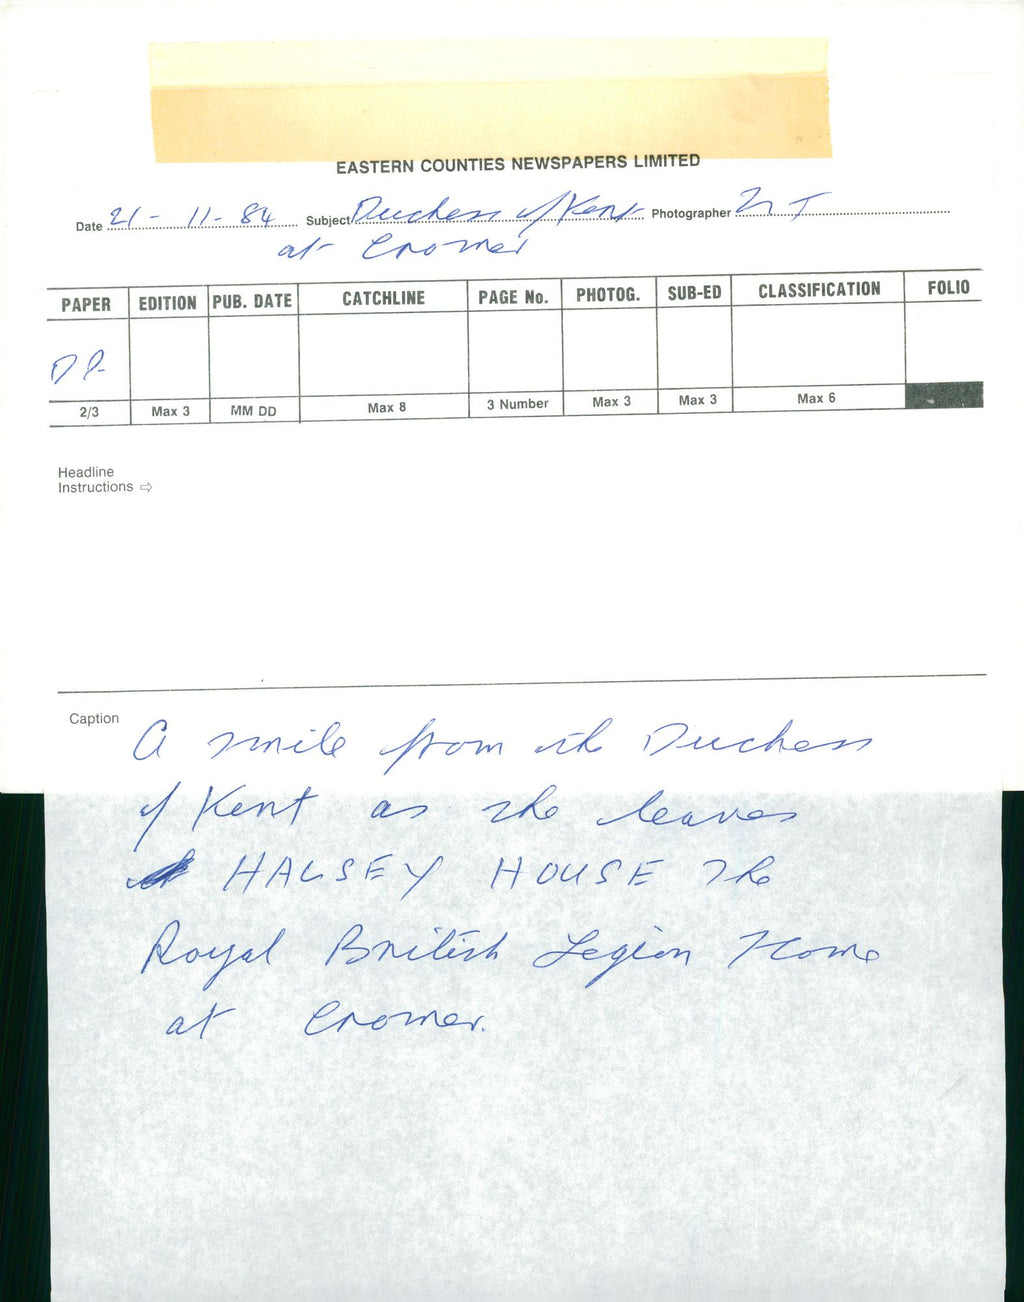 EASTERN COUNTIES NEWSPAPERS LIMITED
Date 21-11-84 Subject Duchess of Kent Photographer
at Cromer
PAPER EDITION PUB. DATE CATCHLINE PAGE No. PHOTOG. SUB-ED CLASSIFICATION FOLIO
DP
2/3 Max 3 MM DD Max 8 3 Number Max 3 Max 3 Max 6
Headline
Instructions ⇨
Caption A smile from the Duchess
of Kent as she leaves
HALSEY HOUSE The
Royal British Legion Home
at Cromer.